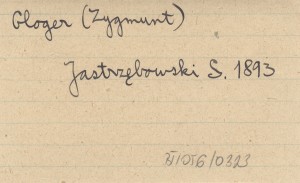 Gloger (Zygmunt)
Jastrzębowski S. 1893
/0323